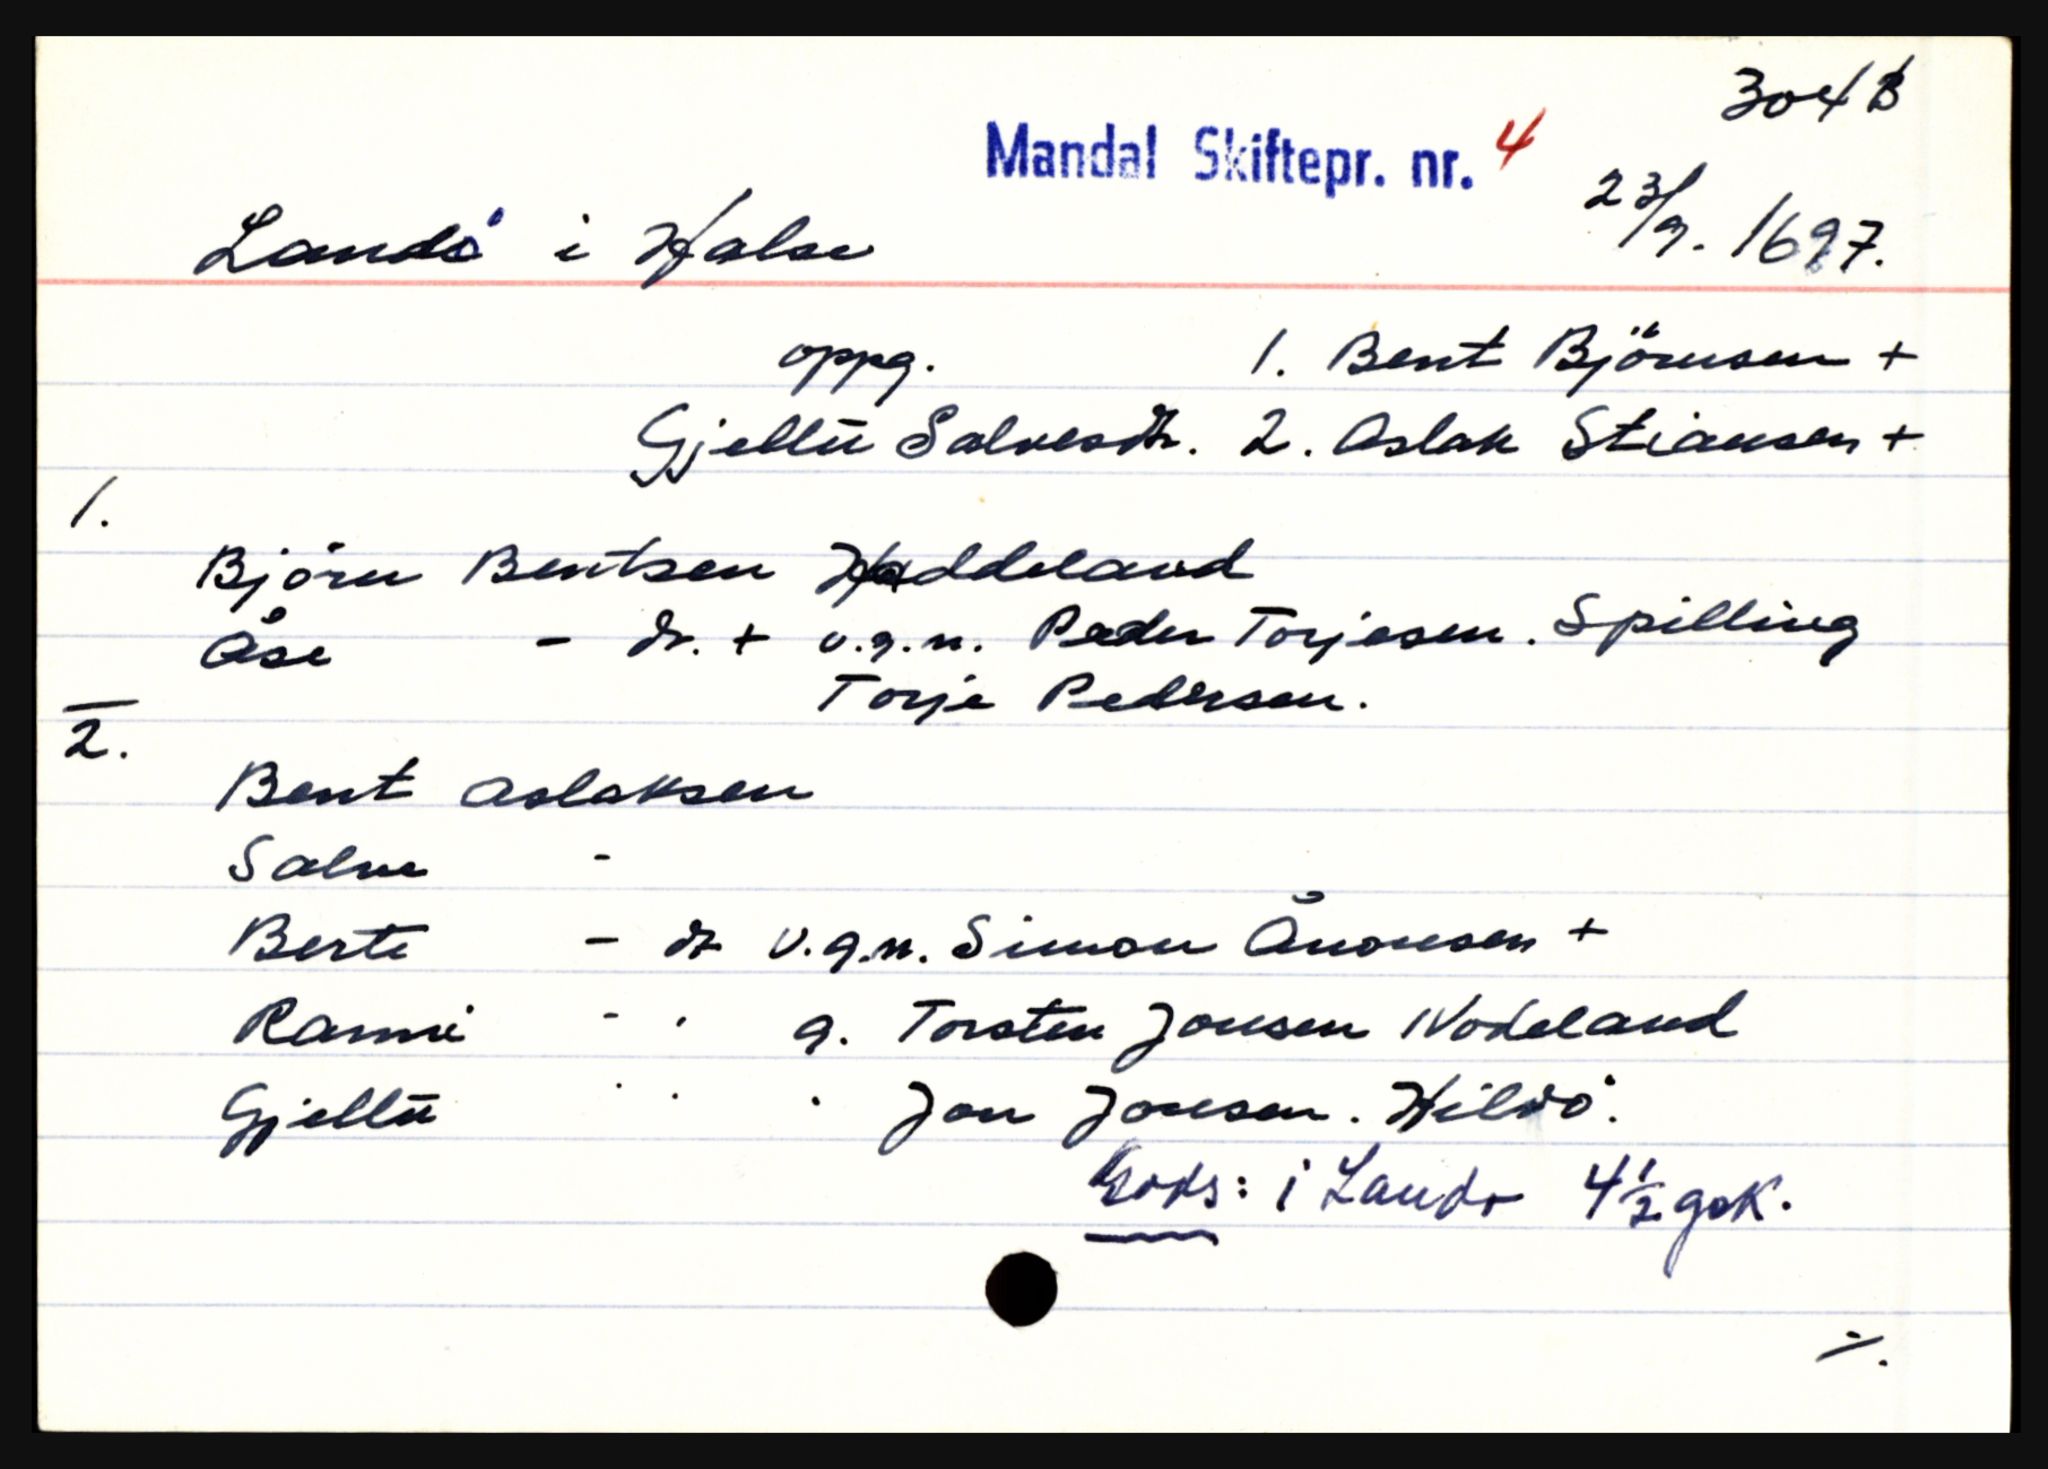 304 B
Mandal Skiftepr. nr. 4
23/9. 1697.
Landö i Halse
oppg. 1. Bent Björnsen +
Gjellu Salvesdtr. 2. Aslak Stiansen +
1.
Björn Bentsen Haddeland
Åse - dtr. + v.g.m. Peder Torjesen. Spilling
Torje Pedersen.
2.
Bent Aslaksen
Salve -
Berte - dtr v.g.m. Simon Ånonsen +
Ranni - · g. Torsten Jonsen Nodeland
Gjellu · · · Jon Jonsen. Hilsö.
Gods: i Landö 4 1/2 gsk.